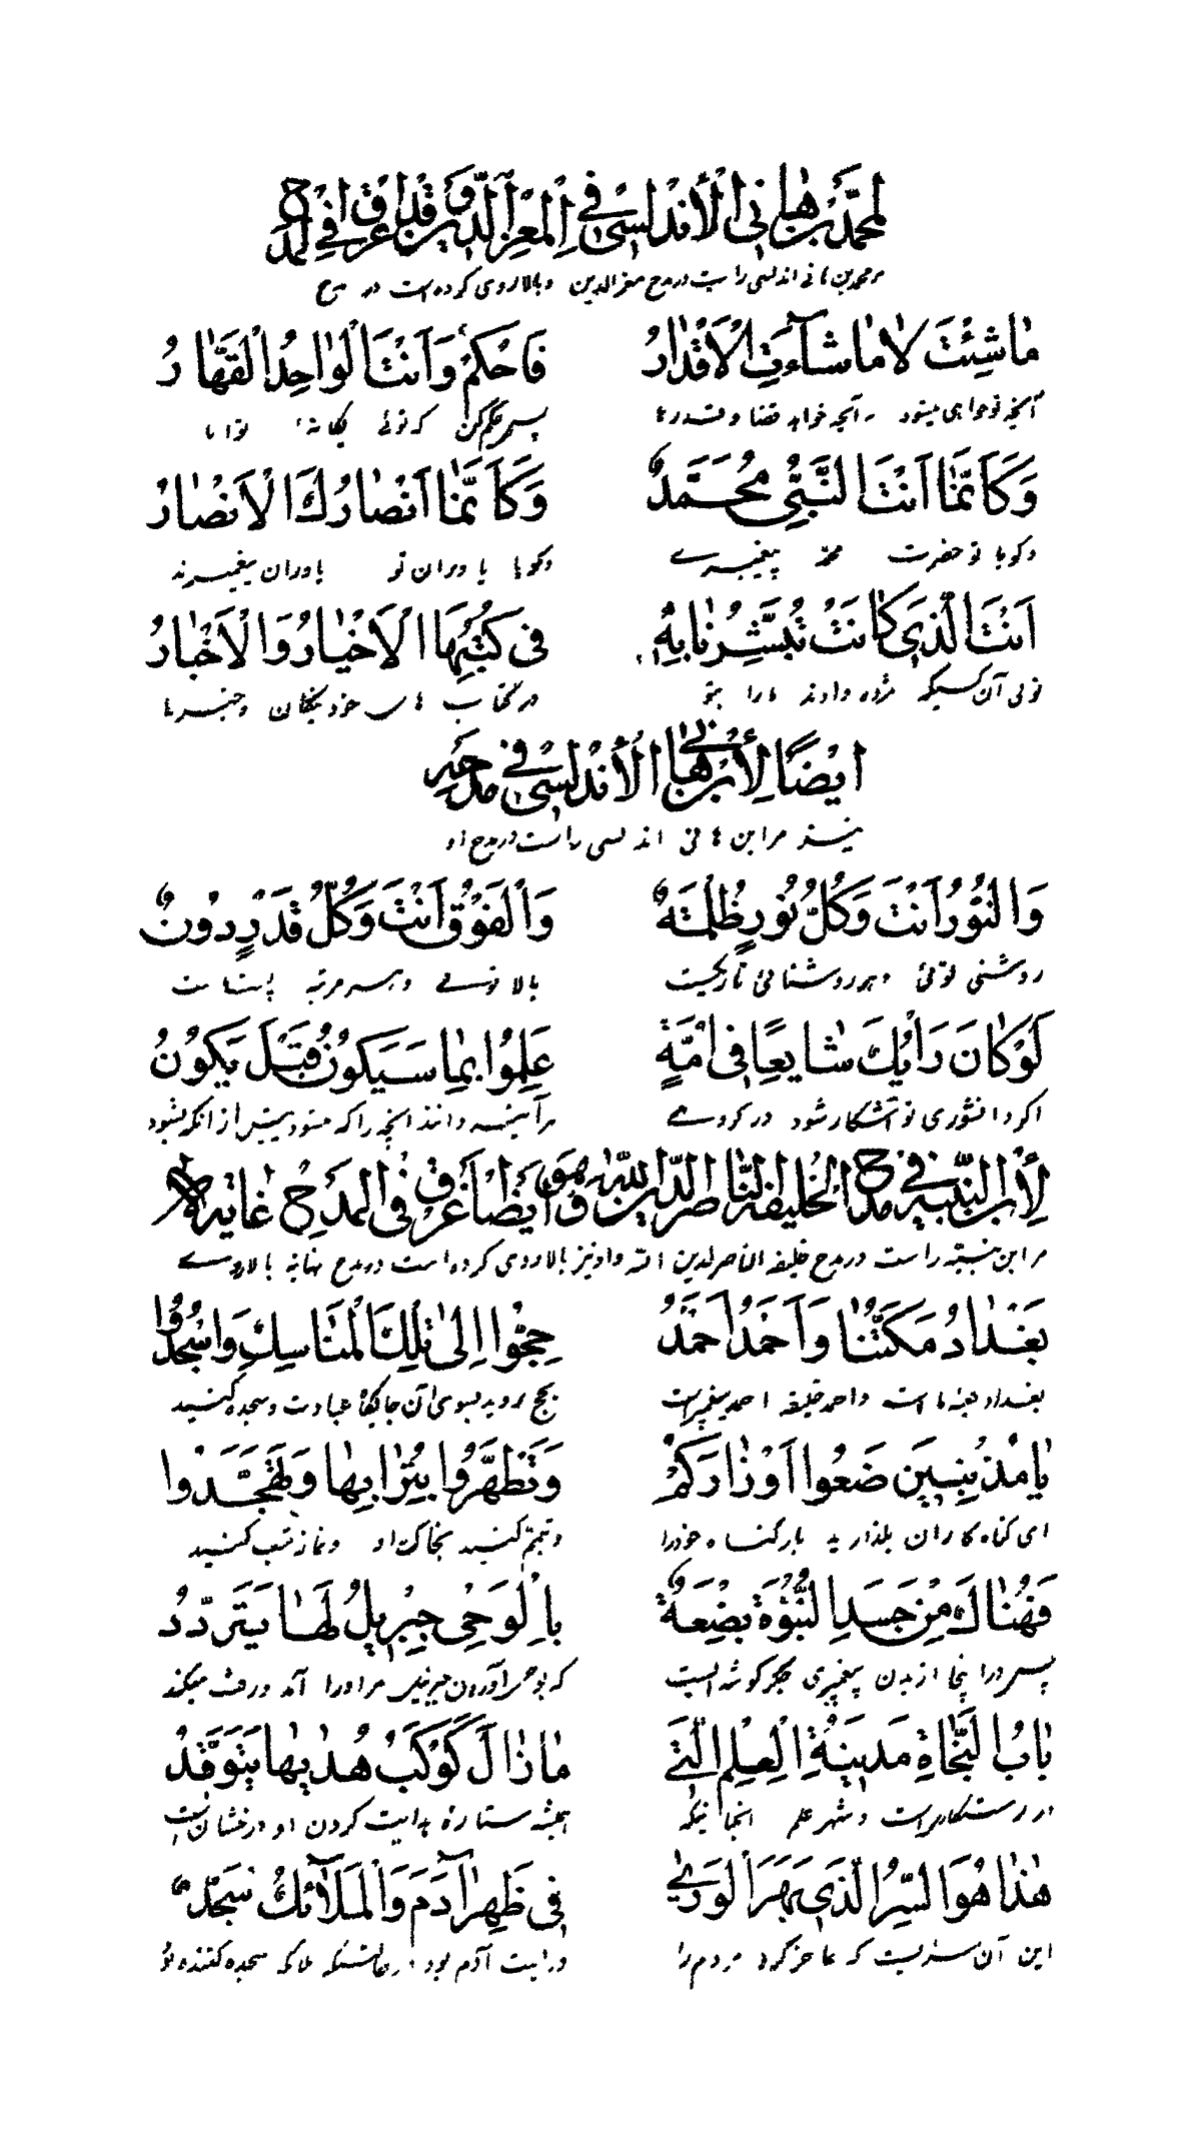 لمحمّد بن هانی الأندلسی فی المعزّ الدّین و قد أغرق فی المدح
مر محمد بن هانی اندلسی راست در مدح معز الدین و بالاروی کرده است در مدح
مٰا شِئْتَ لاٰ مٰا شٰاءَتِ الْاَقْدٰارُ فَاحْكُمْ وَ اَنْتَ الْوٰاحِدُ الْقَهّٰارُ
آنچه تو خواهی میشود نه آنچه خواهد قضا و قدرها پس حکم کن که توئی یگانه توانا
وَ كَاَنَّمٰا اَنْتَ النَّبِیُّ مُحَمَّدٌ وَ كَاَنَّمٰا اَنْصٰارُكَ الْاَنْصٰارُ
و گویا تو حضرت محمّد پیغمبرے و گویا یاوران تو یاوران پیغمبرند
اَنْتَ الَّذی كٰانَتْ تُبَشِّرُنٰا بِهِ فی كُتْبِهَا الْاَحْبٰارُ وَ الْاَخْبٰارُ
توئی آن کسیکه مژده دادند مارا بتو در کتاب های خود نیکان و خبرها
ایضًا لِأبن هانی الأندلسی فی مدحه
نیز مر ابن هانی اندلسی راست در مدح او
وَ النُّوْرُ اَنْتَ وَ كُلُّ نُورٍ ظُلْمَةٌ وَ الْفَوْقُ اَنْتَ وَ كُلُّ قَدْرٍ دُونٌ
روشنی توئی و هر روشنائی تاریکیست بالا توئے و هر مرتبه پست است
لَوْ كٰانَ رَأْیُكَ شٰایِعًا فِی اُمَّةٍ عَلِمُوا بِمٰا سَیَكُونُ قَبْلَ یَكُونُ
اگر دانشوری تو آشکار شود در گروهے هر آینه دانند آنچه را که میشود پیش از آنکه بشود
لأبن النّبیه فی مدح الخلیفة النّاصر لدین اللّه و هو ایضاً أغرق فی المدح غایته
مر ابن نبیه راست در مدح خلیفه الناصر لدین الله و او نیز بالاروی کرده است در مدح نهایة بالاروے
بَغْدٰادُ مَكَّتُنٰا وَ اَحْمَدُ اَحْمَدُ حِجُّوا اِلٰی تِلْكَ الْمَنٰاسِكِ وَ اسْجُدُوا
بغداد مکه ما است و احمد خلیفه احمد پیغمبر است بحج روید بسوی آن جایگاه عبادت و سجده کنید
یٰا مُذْنِبِینَ ضَعُوا اَوْزٰارَكُمْ وَ تَطَهَّرُوا بِتُرٰابِهٰا وَ تَهَجَّدُوا
ای گناه کاران بگذارید بار گناه خود را و تیمّم کنید بخاک او و نماز شب کنید
فَهُنٰاكَ مِنْ جَسَدِ النُّبُوَّةِ بَضْعَةٌ بِالْوَحْیِ جِبْریلُ لَهٰا یَتَرَدَّدُ
پس در اینجا از بدن پیغمبری جگر گوشه ایست که بوحی آوردن جبرئیل مر او را آمد و رفت میکند
بٰابُ النَّجٰاةِ مَدینَةُ الْعِلْمِ الَّتی مٰا زٰالَ كَوْكَبُ هُدٰیهٰا یَتَوَقَّدُ
در رستگاری است و شهر علم آنچنانیکه همیشه ستاره هدایت کردن او درخشان است
هٰذٰا هُوَ السِّرُّ الَّذی بَهَرَ الْوَرٰی فِی ظَهْرِ آدَمَ وَ الْمَلاٰئِكُ سُجَّدٌ
این آن سرّیست که عاجز کرد مردم را در پشت آدم بود ملائکه سجده کننده بود